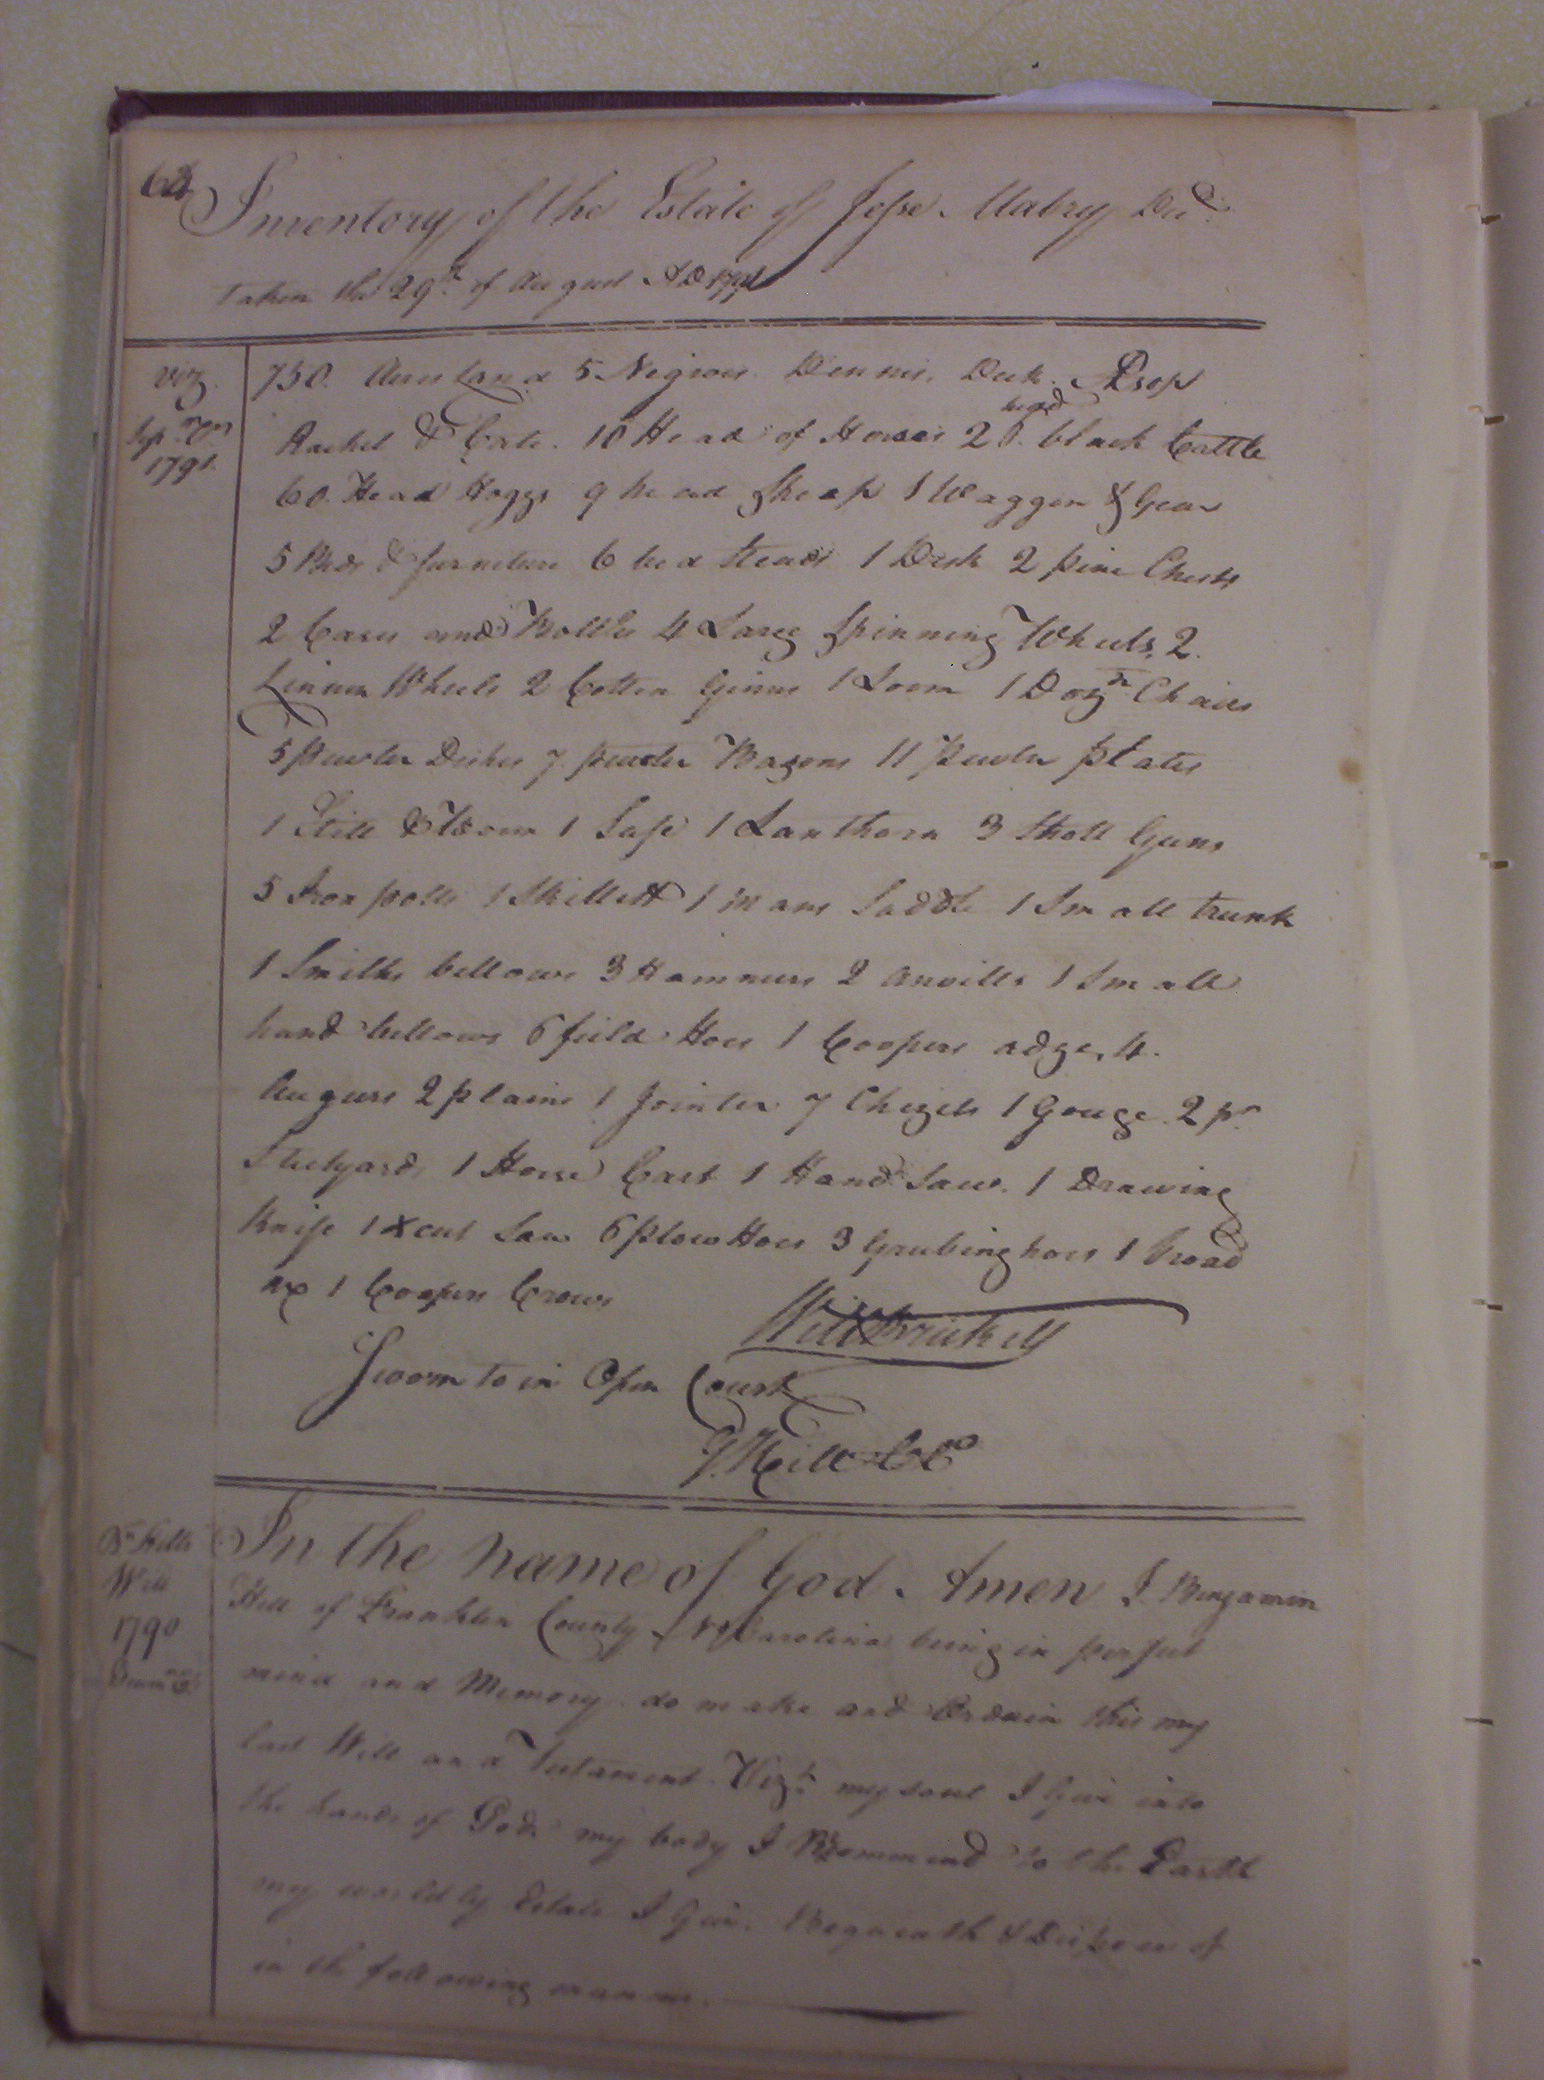 64
Inventory of the Estate of Jesse Mabry Decd
taken the 29th of August AD 1791
viz
Sepr
1791.
750. Acres Land 5 Negroes. Dennis, Dick. Esop
Rachel & Cate. 10 Head of Horses 20 head black Cattle
60. Head Hoggs 9 head Sheep 1 Waggon & Gear
5 Beds & furniture 6 bed steads 1 Desk 2 pine Chests
2 Cases and Bottles 4 Large Spinning Wheels, 2.
Linnen Wheels 2 Cotten Ginns 1 Loom 1 Dozn Chairs
5 Pewter Dishes 7. pewter Basons 11 Pewter plates
1 Still & Worm 1 Safe 1 Lanthorn 3 Shott Guns
5 Iron potts 1 Skillett 1 mans Saddle 1 Small trunk
1 Smiths bellows 3 Hammers 2 anvills 1 Small
hand bellows 6 field Hoes 1 Coopers adze, 4.
Augurs 2 plains 1 Jointer 7 Chizels 1 Gouge. 2 pr
Steelyards, 1 Horse Cart 1 Hand Saw. 1 Drawing
Knife 1 X cut Saw 6 plow Hoes 3 Grubing hoes 1 broad
ax 1 Coopers Crows
Will Brickell
Sworn to in Open Court
Hill CC
Hills
Will
1790
In the name of God. Amen I. Benjamin
Hill of Franklin County N Carolina being in perfect
mind and Memory. do make and Ordain this my
last Will and Testament. Vizt. my soul I Give into
the hands of God. my body I Recommend to the Earth
my worldly Estate I Give. Bequeath & Dispose of
in the following manner.